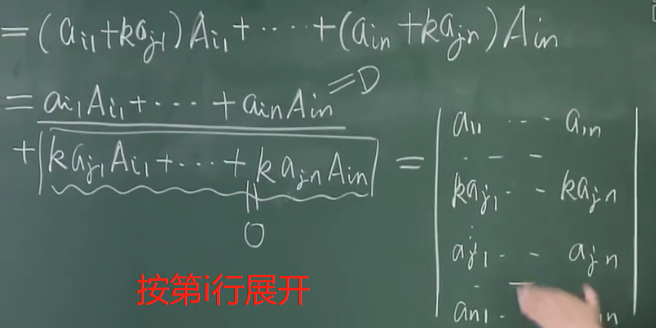 =(ai1+kaj1)Ai1+····+(ain+kajn)Ain
=ai1Ai1+···+ainAin=D
+kaj1Ai1+···+kajnAin=
||
0
a11 ··· a1n
· – –
kaj1 · – kajn
aj1 · – ajn
· –
an1 ·
按第i行展开